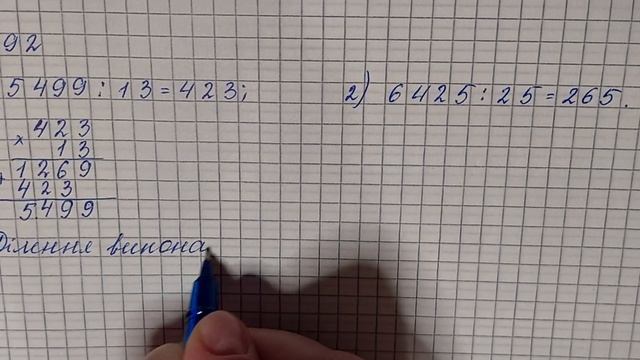 92
5499:13=423;
2) 6425:25=265.
423
× 13
1269
+
423
5499
Ділення викона